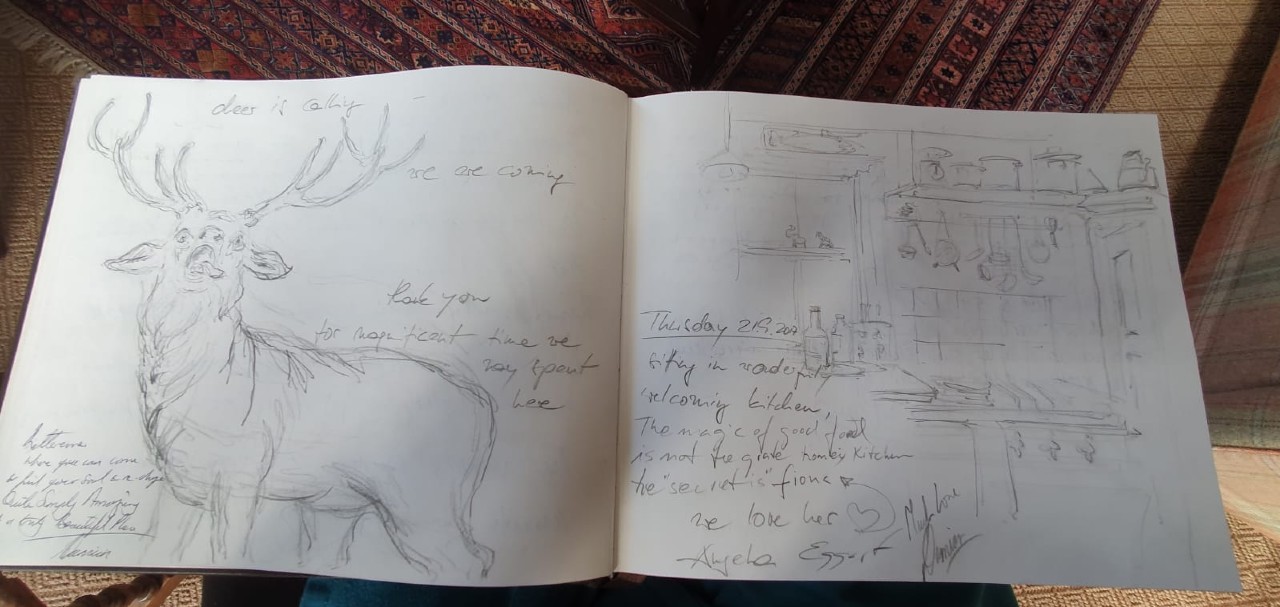 deer is calling
we are coming
thank you
for magnificent time we
spent
here
where you can come
& feel your soul
Quite Simply Amazing
a truly Beautiful Place
Thusday
sitting in wonderfully
welcoming kitchen,
The magic of good food
is not the home's Kitchen
the "secret is" fiona
we love her
Angela Eggert
Much love
Damien